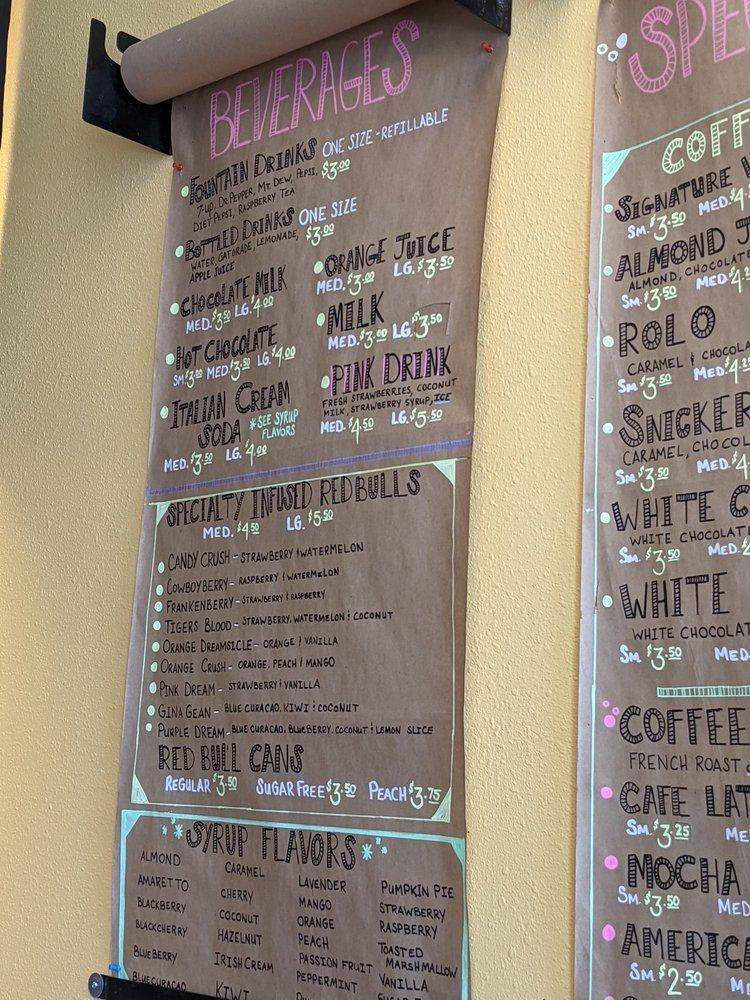 BEVERAGES
FOUNTAIN DRINKS ONE SIZE - REFILLABLE
7-UP, DR. PEPPER, MT. DEW, PEPSI, $3.00
DIET PEPSI, RASPBERRY TEA
BOTTLED DRINKS ONE SIZE
WATER, GATORADE, LEMONADE, $3.00
APPLE JUICE
CHOCOLATE MILK
MED. $3.50 LG. $4.00
HOT CHOCOLATE
SM. $3.00 MED. $3.50 LG. $4.00
ITALIAN CREAM
SODA *SEE SYRUP
FLAVORS
MED. $3.50 LG. $4.00
ORANGE JUICE
MED. $3.00 LG. $3.50
MILK
MED. $3.00 LG. $3.50
PINK DRINK
FRESH STRAWBERRIES, COCONUT
MILK, STRAWBERRY SYRUP, ICE
MED. $4.50 LG. $5.50
SPECIALTY INFUSED REDBULLS
MED. $4.50 LG. $5.50
CANDY CRUSH - STRAWBERRY & WATERMELON
COWBOYBERRY - RASPBERRY & WATERMELON
FRANKENBERRY - STRAWBERRY & RASPBERRY
TIGERS BLOOD - STRAWBERRY, WATERMELON & COCONUT
ORANGE DREAMSICLE - ORANGE & VANILLA
ORANGE CRUSH - ORANGE, PEACH & MANGO
PINK DREAM - STRAWBERRY & VANILLA
GINA GEAN - BLUE CURACAO, KIWI & COCONUT
PURPLE DREAM - BLUE CURACAO, BLUEBERRY, COCONUT & LEMON SLICE
RED BULL CANS
REGULAR $3.50 SUGAR FREE $3.50 PEACH $3.75
SYRUP FLAVORS
ALMOND
AMARETTO
BLACKBERRY
BLACKCHERRY
BLUEBERRY
BLUECURACAO
CARAMEL
CHERRY
COCONUT
HAZELNUT
IRISH CREAM
KIWI
LAVENDER
MANGO
ORANGE
PEACH
PASSION FRUIT
PEPPERMINT
PUMPKIN PIE
STRAWBERRY
RASPBERRY
TOASTED
MARSHMALLOW
VANILLA
SPE
COFF
SIGNATURE
SM. $3.50 MED. $4.
ALMOND J
ALMOND, CHOCOLATE
SM. $3.50 MED. $4.2
ROLO
CARAMEL & CHOCOLA
SM. $3.50 MED. $4.25
SNICKER
CARAMEL, CHOCOL
SM. $3.50 MED. $4
WHITE C
WHITE CHOCOLAT
SM. $3.50 MED. $
WHITE
WHITE CHOCOLAT
SM. $3.50 MED.
COFFEE
FRENCH ROAST
CAFE LAT
SM. $3.25 ME
MOCHA
SM. $3.50 MED
AMERICA
SM. $2.50 M